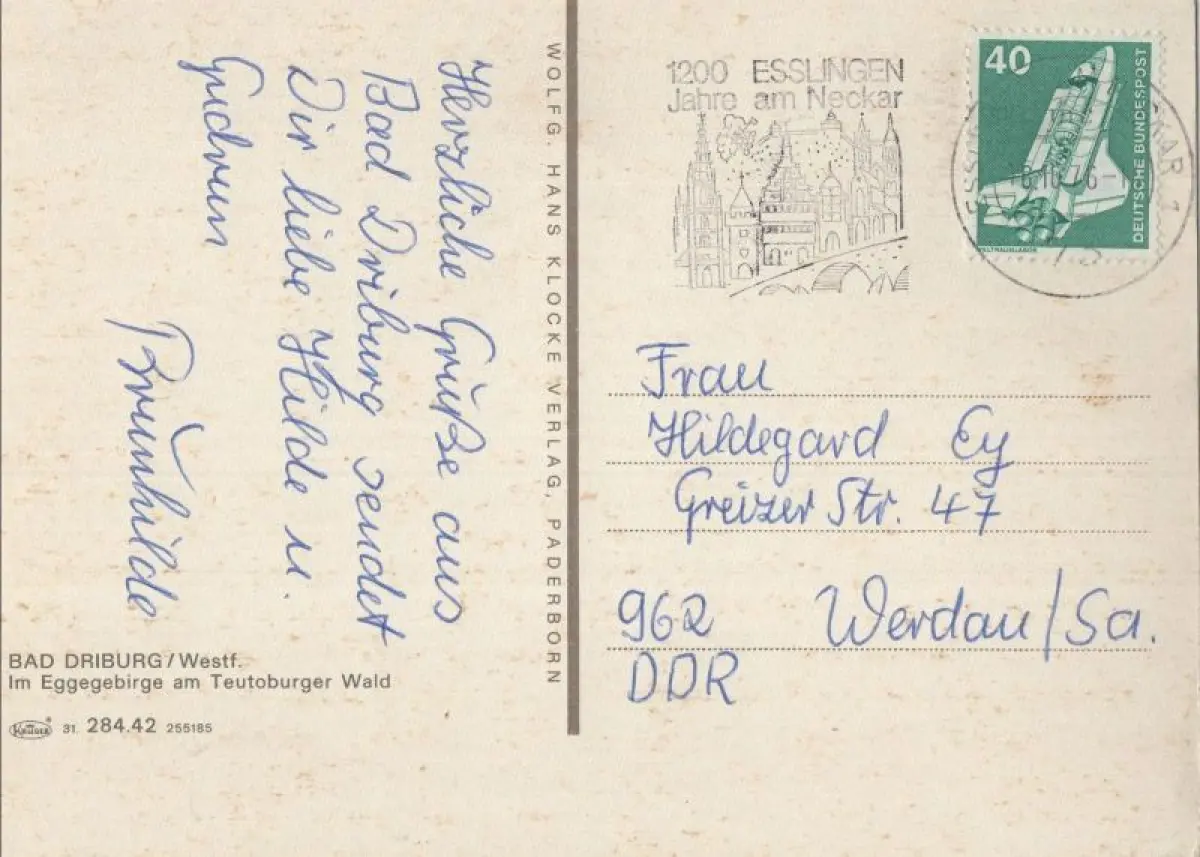 Herzliche Grüße aus
Bad Driburg sendet
Dir liebe Hilde u.
Gudrun
Brünhilde
BAD DRIBURG/Westf.
Im Eggegebirge am Teutoburger Wald
KRÜGER 31. 284.42 255185
WOLFG. HANS KLOCKE VERLAG, PADERBORN
1200 ESSLINGEN
Jahre am Neckar
40
DEUTSCHE BUNDESPOST
WELTRAUMLABOR
Frau
Hildegard Ey
Greizer Str. 47
962 Werdau/Sa.
DDR